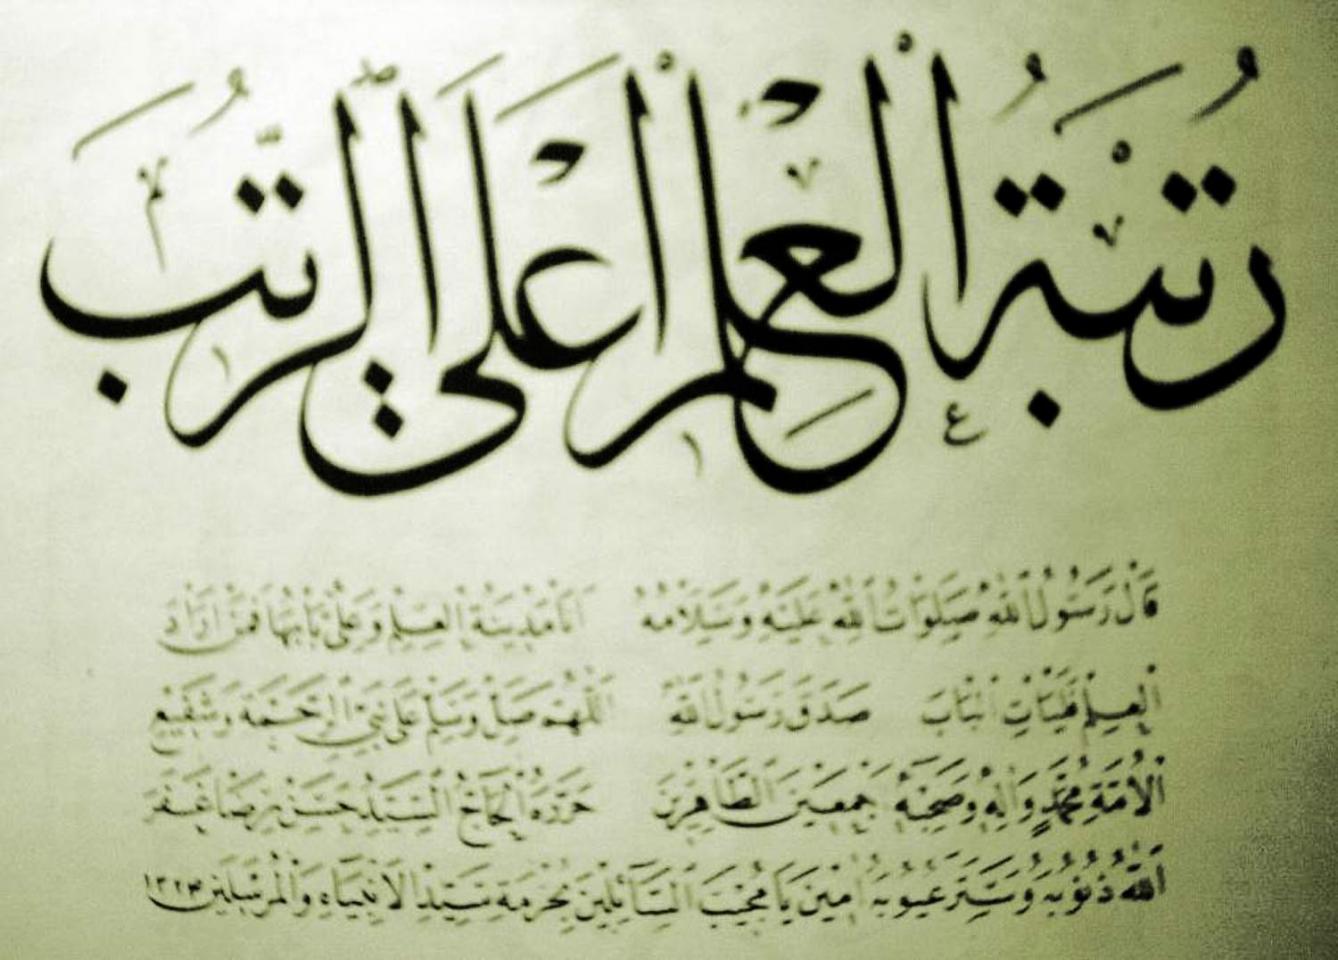 رُتْبَةُ الْعِلْمِ أَعْلَى الرُّتَبِ
قَالَ رَسُولُ اللهِ صَلَوَاتُ اللهِ عَلَيْهِ وَسَلَامُهُ أَنَا مَدِينَةُ الْعِلْمِ وَعَلِيٌّ بَابُهَا فَمَنْ أَرَادَ
الْعِلْمَ فَلْيَأْتِ الْبَابَ صَدَقَ رَسُولُ اللهِ اللّٰهُمَّ صَلِّ وَسَلِّمْ عَلَى نَبِيِّ الرَّحْمَةِ وَشَفِيعِ
الْأُمَّةِ مُحَمَّدٍ وَآلِهِ وَصَحْبِهِ أَجْمَعِينَ الطَّاهِرِينَ حَرَّرَهُ الْحَاجُّ السَّيِّدُ حَسَن رِضَا غَفَرَ
اللهُ ذُنُوبَهُ وَسَتَرَ عُيُوبَهُ آمِينَ يَا مُجِيبَ السَّائِلِينَ بِحُرْمَةِ سَيِّدِ الْأَنْبِيَاءِ وَالْمُرْسَلِينَ